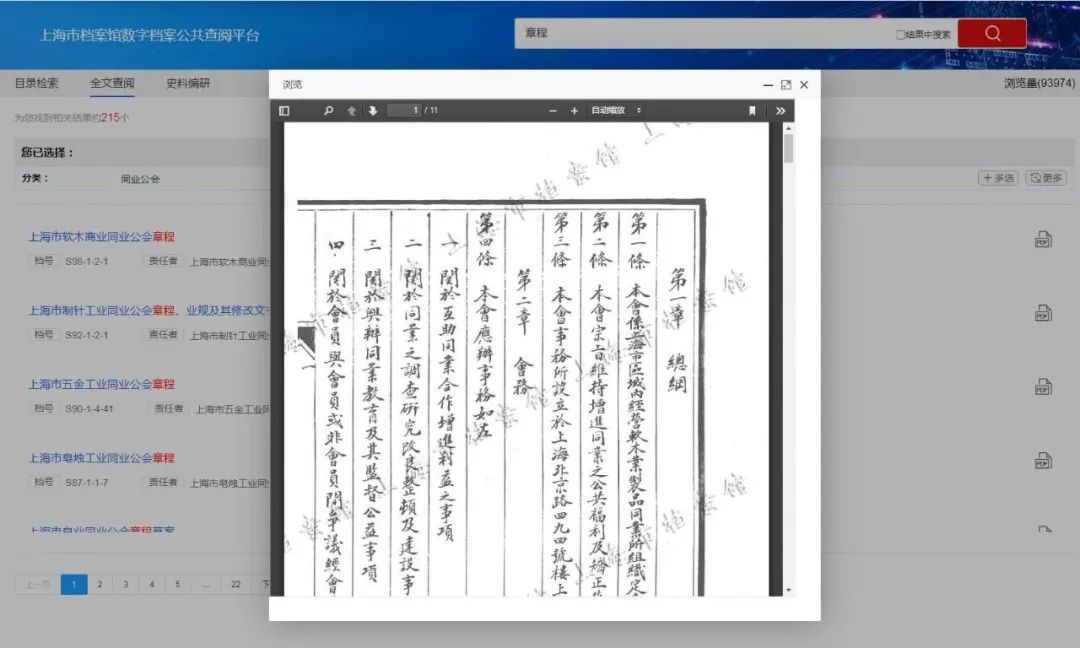 上海市档案馆数字档案公共查阅平台
章程
结果中搜索
目录检索 全文查阅 史料编研
浏览量(93974)
为您找到相关结果约215个
您已选择：
分类： 同业公会
多选 更多
上海市软木商业同业公会章程
档号 S96-1-2-1 责任者 上海市软木商业同
上海市制针工业同业公会章程、业规及其修改文
档号 S92-1-2-1 责任者 上海市制针工业同
上海市五金工业同业公会章程
档号 S90-1-4-41 责任者 上海市五金工业同
上海市皂烛工业同业公会章程
档号 S87-1-1-7 责任者 上海市皂烛工业同
上一页 1 2 3 4 5 ... 22 下
浏览
1 / 11
自动缩放
第一章 總綱
第一條 本會係上海市區域內經營軟木業製品同業所組織定
第二條 本會宗旨維持增進同業之公共福利及矯正
第三條 本會事務所設立於上海北京路四九四號樓上
第二章 會務
第四條 本會應辦事務如左
一 関於互助同業合作增進利益之事項
二 関於同業之調查研究改良整頓及建設事
三 関於興辦同業教育及其監督公益事項
四 関於會員與會員或非會員間爭議經會
PDF
PDF
PDF
PDF